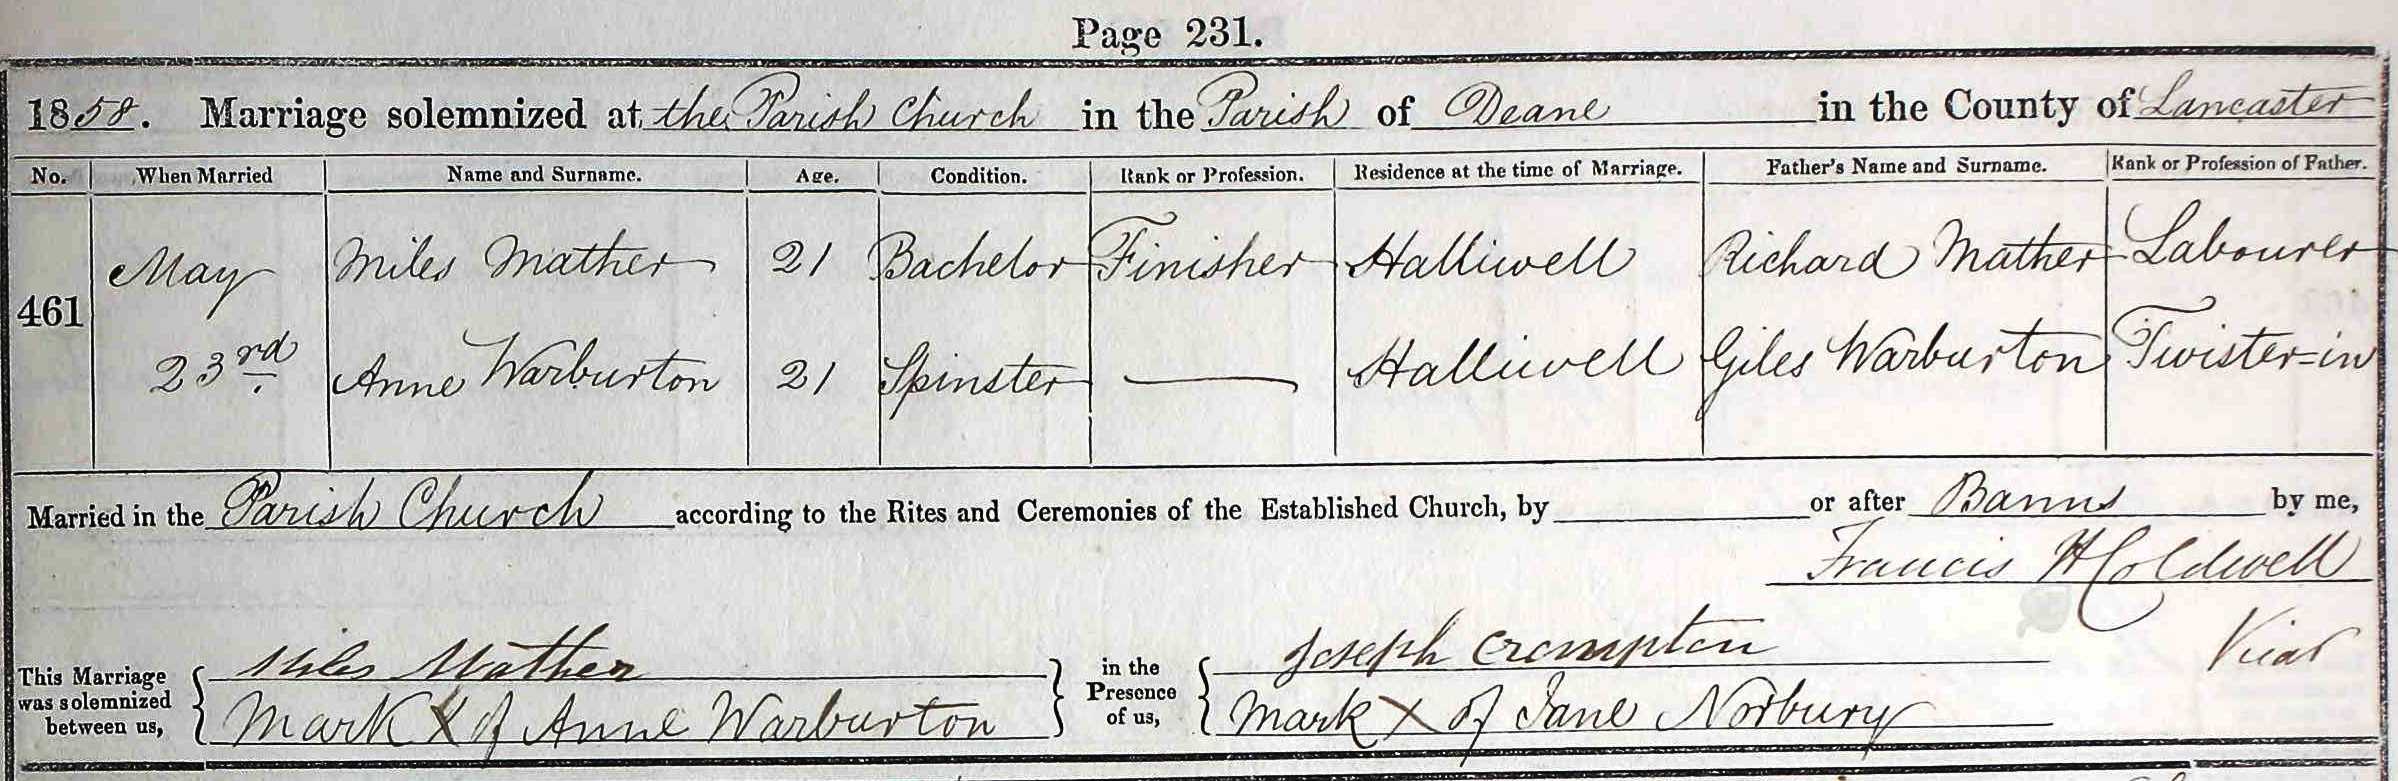 Page 231.
1858. Marriage solemnized at the Parish Church in the Parish of Deane in the County of Lancaster
No. When Married Name and Surname. Age. Condition. Rank or Profession. Residence at the time of Marriage. Father's Name and Surname. Rank or Profession of Father.
461 May 23rd. Miles Mather 21 Bachelor Finisher Halliwell Richard Mather Labourer
Anne Warburton 21 Spinster — Halliwell Giles Warburton Twister=in
Married in the Parish Church according to the Rites and Ceremonies of the Established Church, by or after Banns by me,
Francis H Coldwell
Vicar
This Marriage was solemnized between us, Miles Mather in the Presence of us, Joseph Crompton
Mark X of Anne Warburton Mark X of Jane Norbury